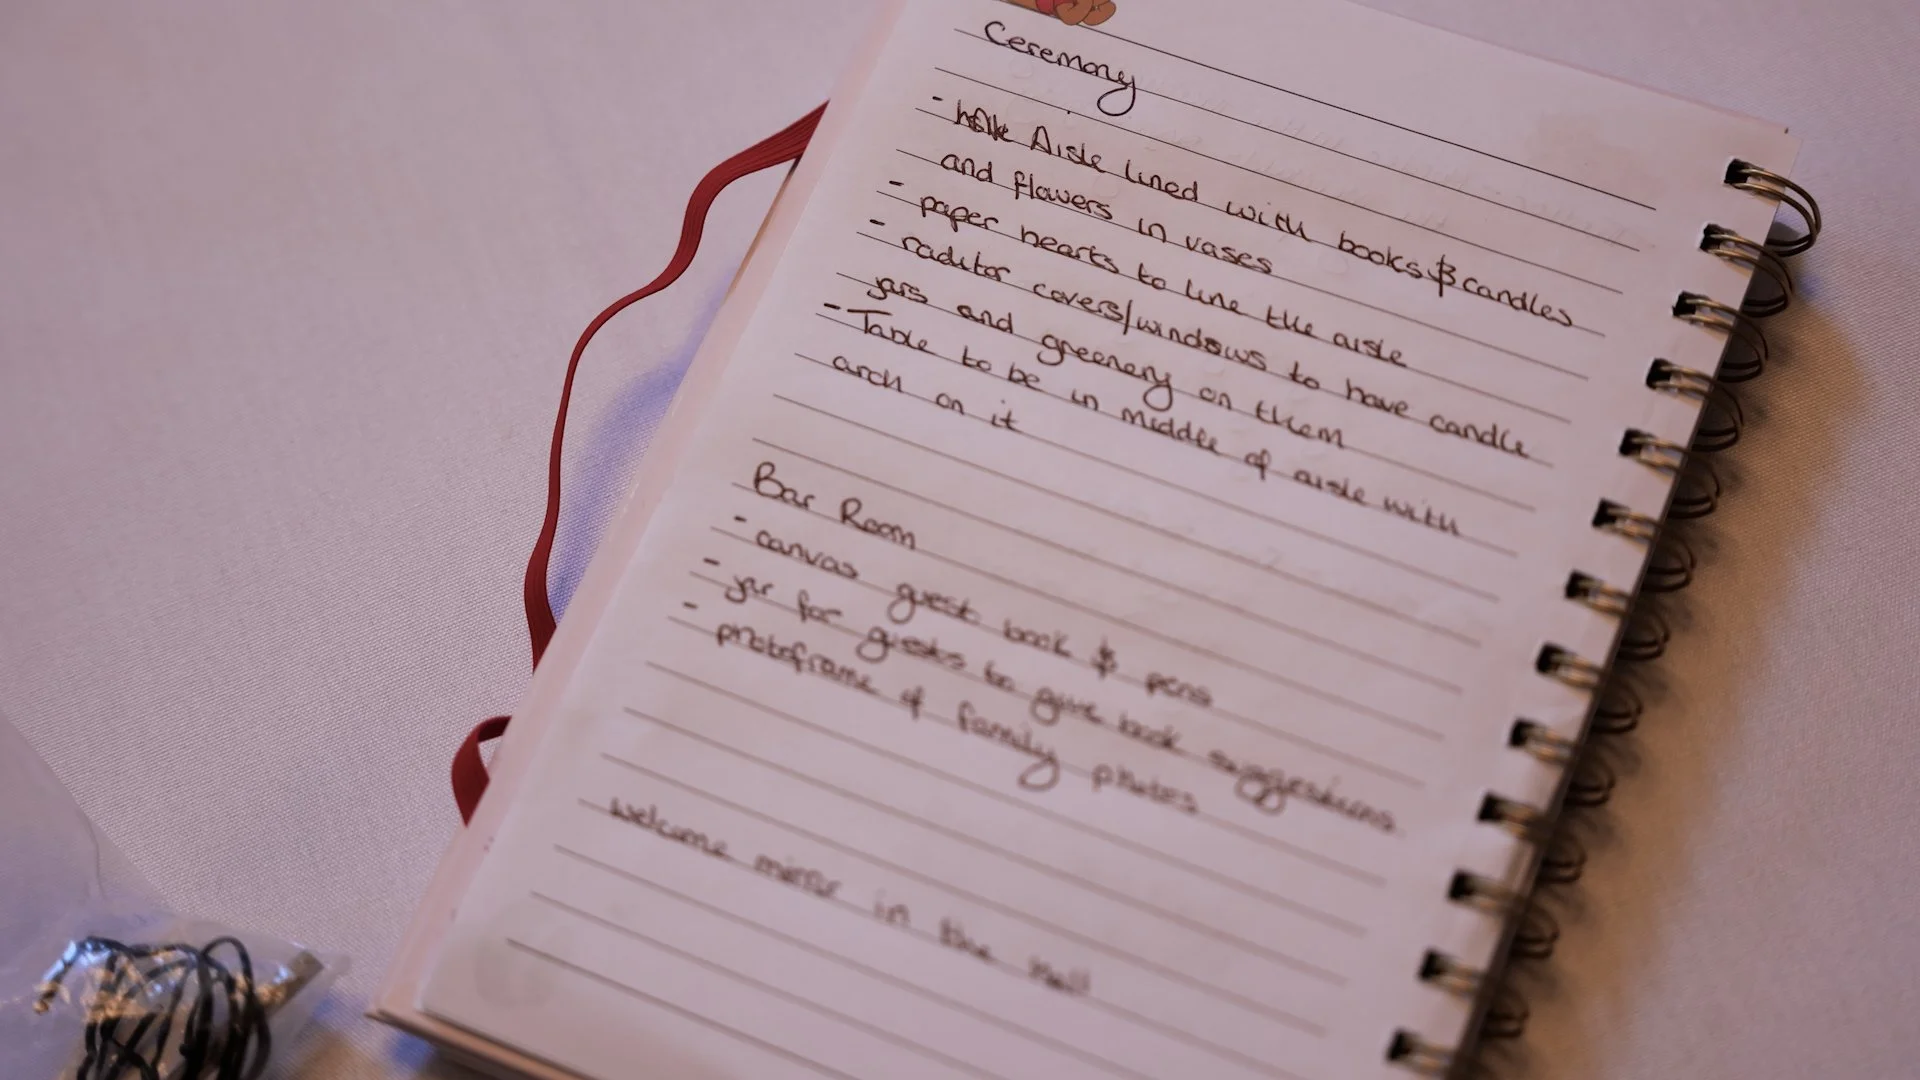 Ceremony
- Aisle lined with books & candles
and flowers in vases
- paper hearts to line the aisle
- raditor covers/windows to have candle
jars and greenery on them
- Table to be in middle of aisle with
arch on it
Bar Room
- canvas guest book & pens
- jar for guests to give book suggestions
- photoframe of family photos
welcome mirror in the hall